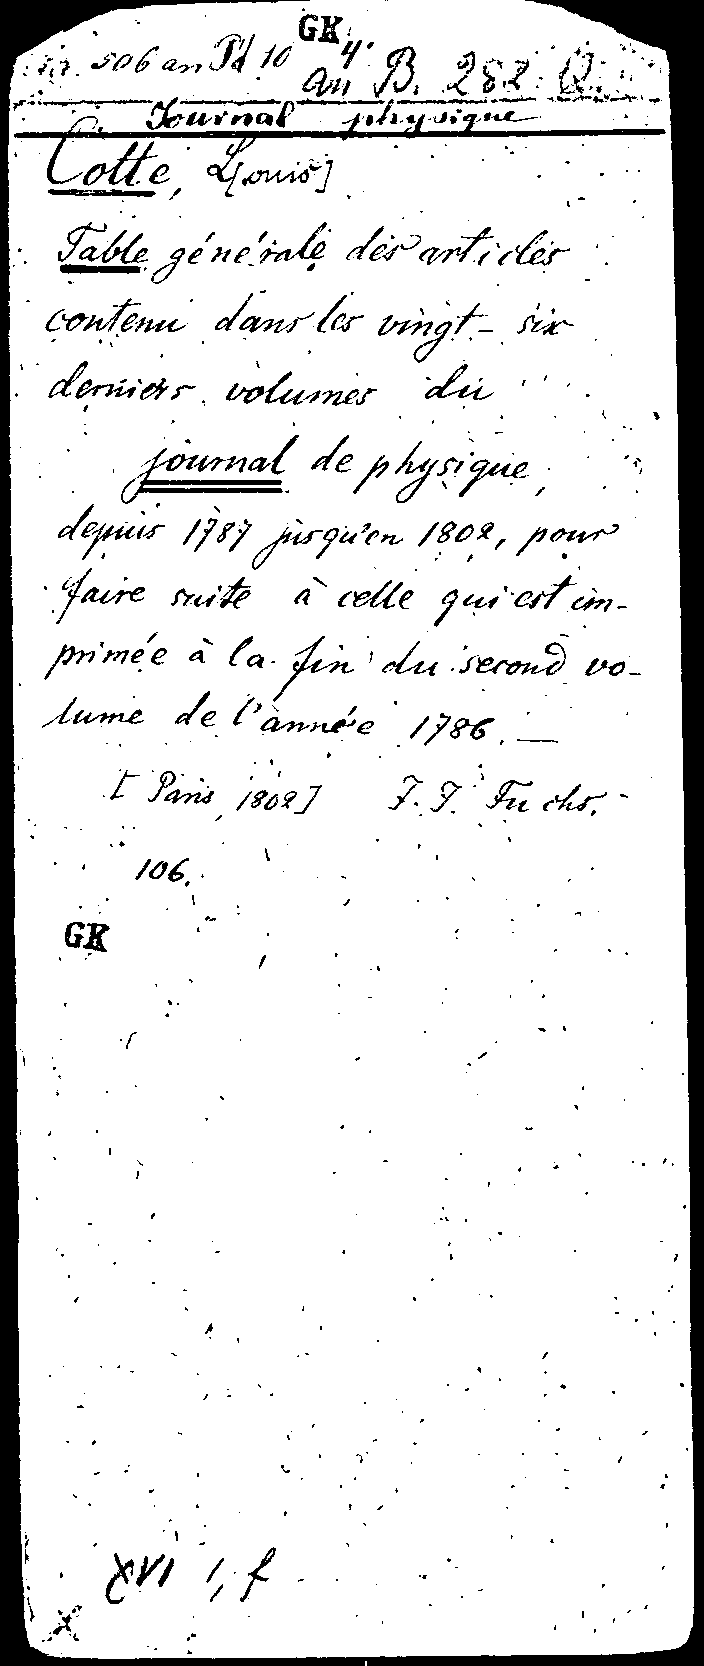 GK
506 an Pd 10 4°
an B. 282. Q.
Journal physique
Cotte, L[ouis]
Table générale des articles
contenu dans les vingt-six
derniers volumes du
journal de physique,
depuis 1787 jusqu'en 1802, pour
faire suite à celle qui est im-
primée à la fin du second vo-
lume de l'année 1786. —
[Paris, 1802] J. J. Fuchs.
106.
GK
XVI 1, f
X